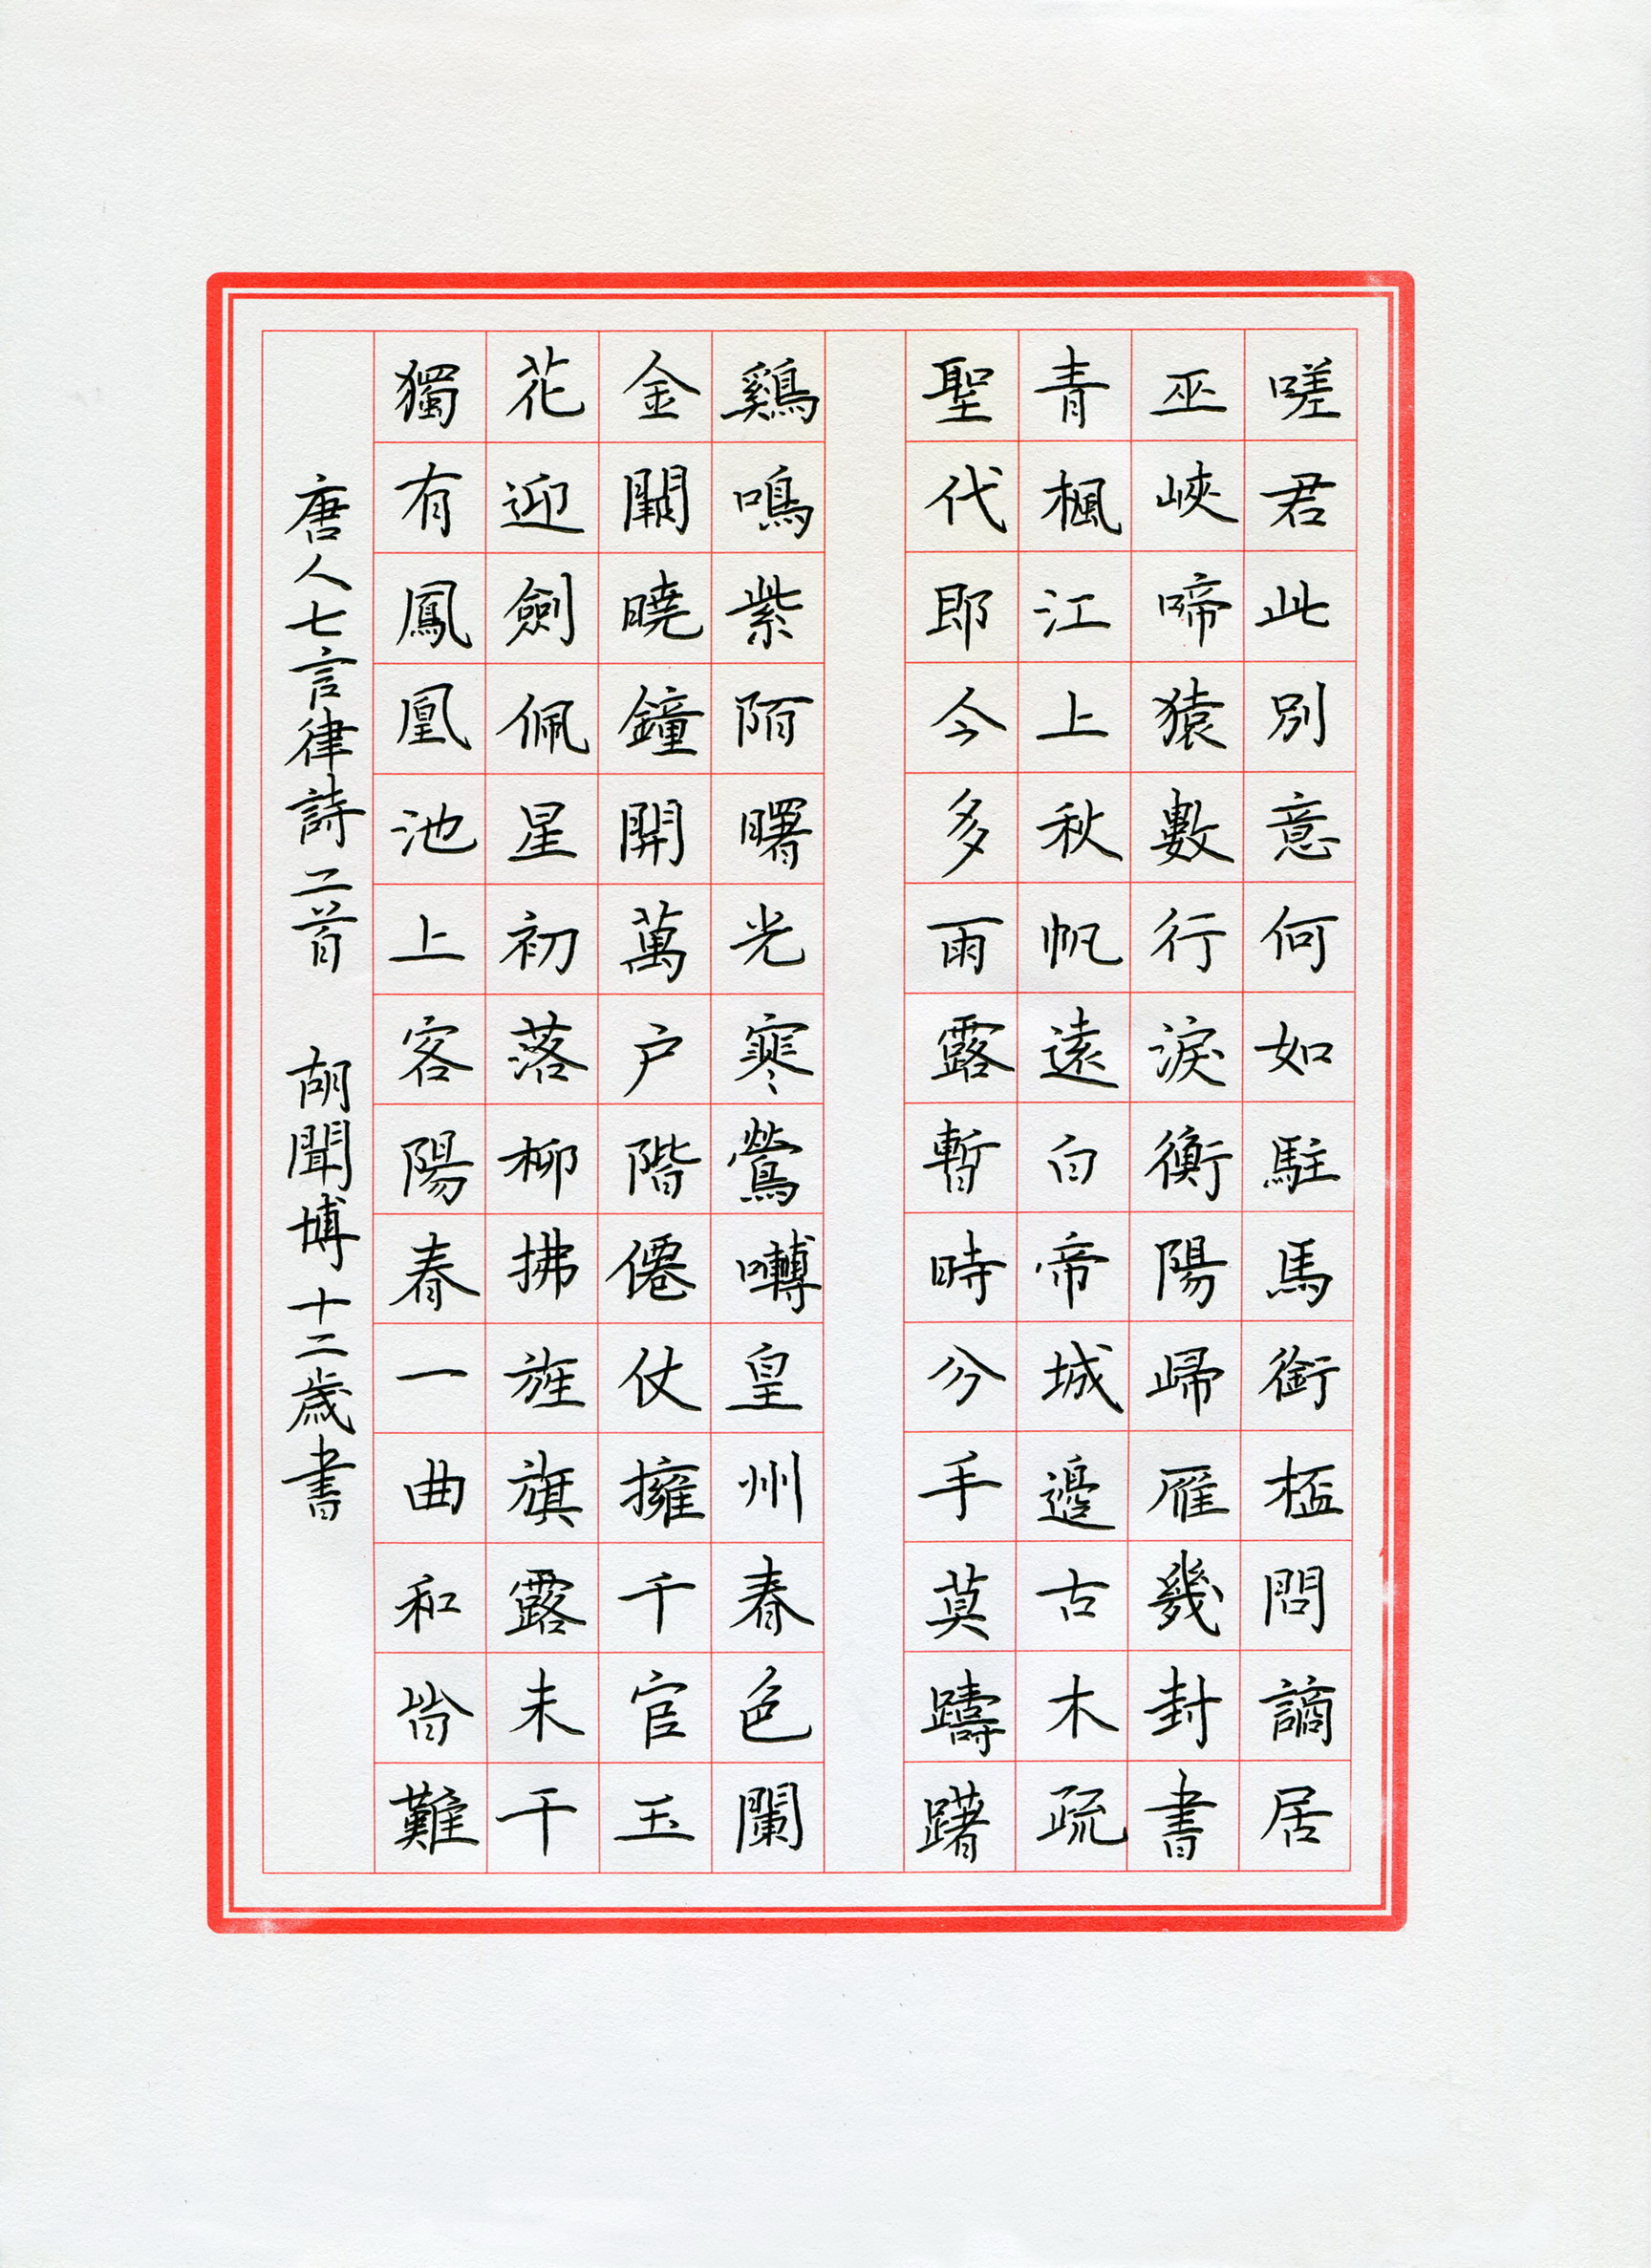 嗟君此別意何如駐馬銜桮問謫居
巫峽啼猿數行淚衡陽歸雁幾封書
青楓江上秋帆遠白帝城邊古木疏
聖代即今多雨露暫時分手莫躊躇
鷄鳴紫陌曙光寒鶯囀皇州春色闌
金闕曉鐘開萬户玉階僊仗擁千官
花迎劍佩星初落柳拂旌旗露未乾
獨有鳳凰池上客陽春一曲和皆難
唐人七言律詩二首 胡聞博十二歲書